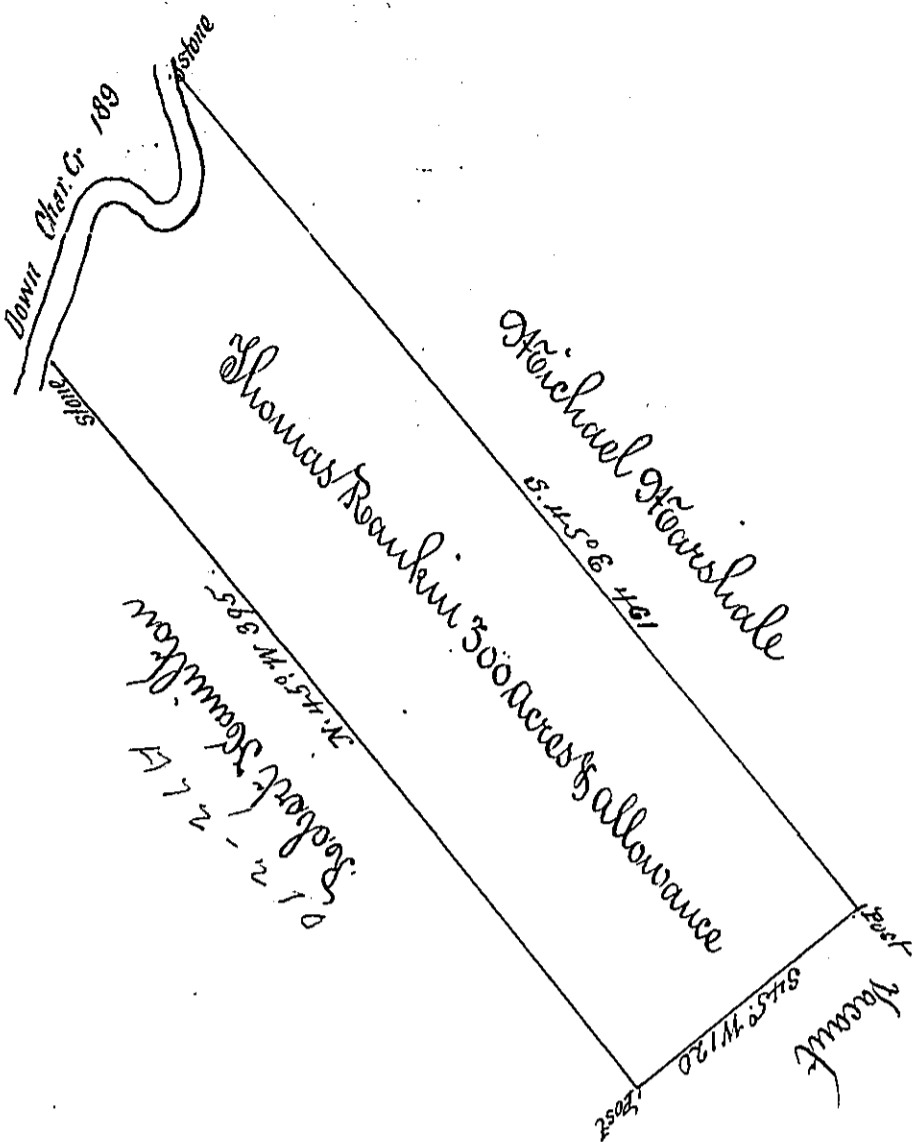 Stone
Down Char. Cr. 189
Stone
Michael Marshale
S. 45° E 461
Thomas Rankin 300 Acres & allowance
N. 45° W 395.
Robert Hamilton
Post
S 45° W 120
Vacant
Post